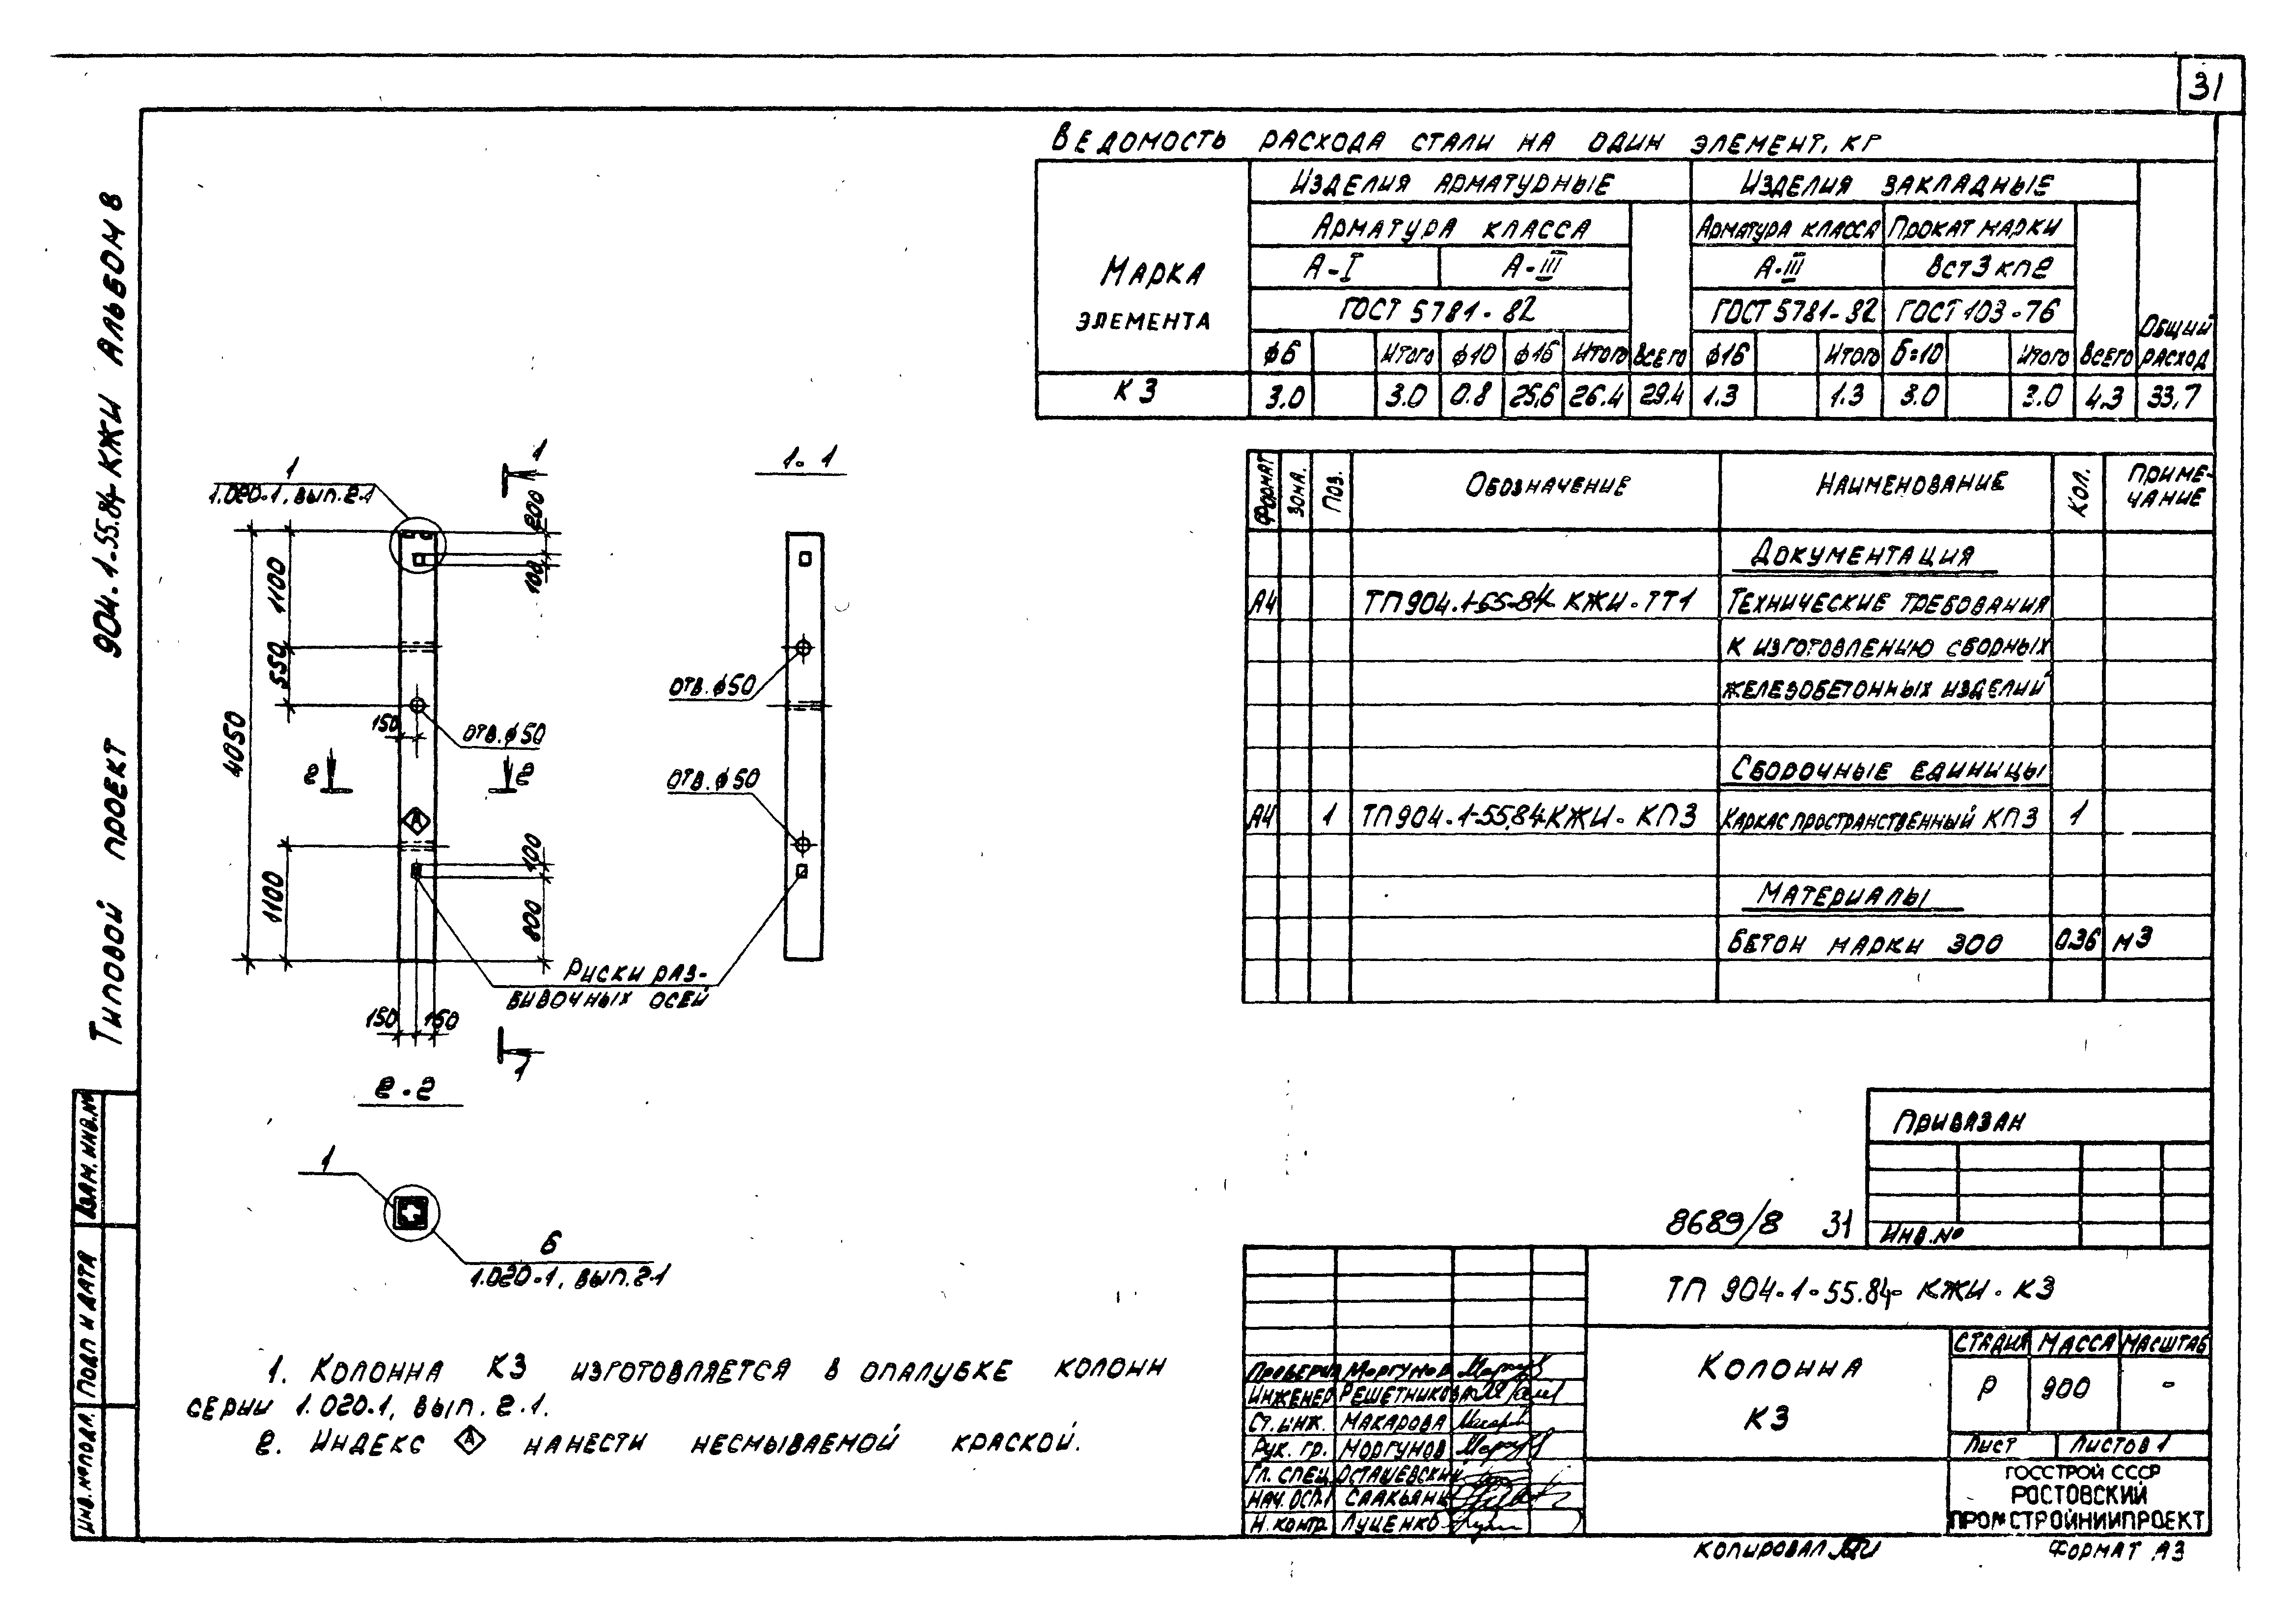 31
Типовой проект 904-1-55.84-КЖИ Альбом 8
Ведомость расхода стали на один элемент, кг
Марка элемента
Изделия арматурные
Изделия закладные
Общий расход
Арматура класса
Арматура класса
Прокат марки
А-I
А-III
А-III
Вст3кп2
ГОСТ 5781-82
ГОСТ 5781-82
ГОСТ 103-76
ф6 Итого ф10 ф16 Итого Всего ф16 Итого δ=10 Итого Всего
К3 3.0 3.0 0.8 25,6 26.4 29.4 1.3 1.3 3.0 3.0 4,3 33,7
Формат Зона. Поз. Обозначение Наименование Кол. Приме-
чание
Документация
А4 ТП904.1-55-84-КЖИ-ТТ1 Технические требования
к изготовлению сборных
железобетонных изделий
Сборочные единицы
А4 1 ТП904.1-55.84-КЖИ-КП3 Каркас пространственный КП3 1
Материалы
Бетон марки 300 0.36 м3
1
1.020-1, вып.2-1
1
1-1
200
100
1100
550
4050
150
отв.ф50
отв.ф50
отв.ф50
2
2
А
100
800
1100
Риски раз-
бивочных осей
150
150
1
2-2
1
6
1.020-1, вып.2-1
1. Колонна К3 изготовляется в опалубке колонн
серии 1.020.1, вып. 2.1.
2. Индекс А нанести несмываемой краской.
Привязан
Инв.№
8689/8 31
ТП 904-1-55.84-КЖИ-К3
Колонна
К3
Стадия Масса Масштаб
Р 900 -
Лист Листов 1
Госстрой СССР
Ростовский
Промстройниипроект
Проверил Моргунов
Инженер Решетникова
Ст.инж. Макарова
Рук. гр. Моргунов
Гл. спец Осташевский
Нач.ОСП1 Саакьянц
Н.контр. Луценко
Копировал
Формат А3
Взам.инв.№
Подп и дата
Инв.№подл.